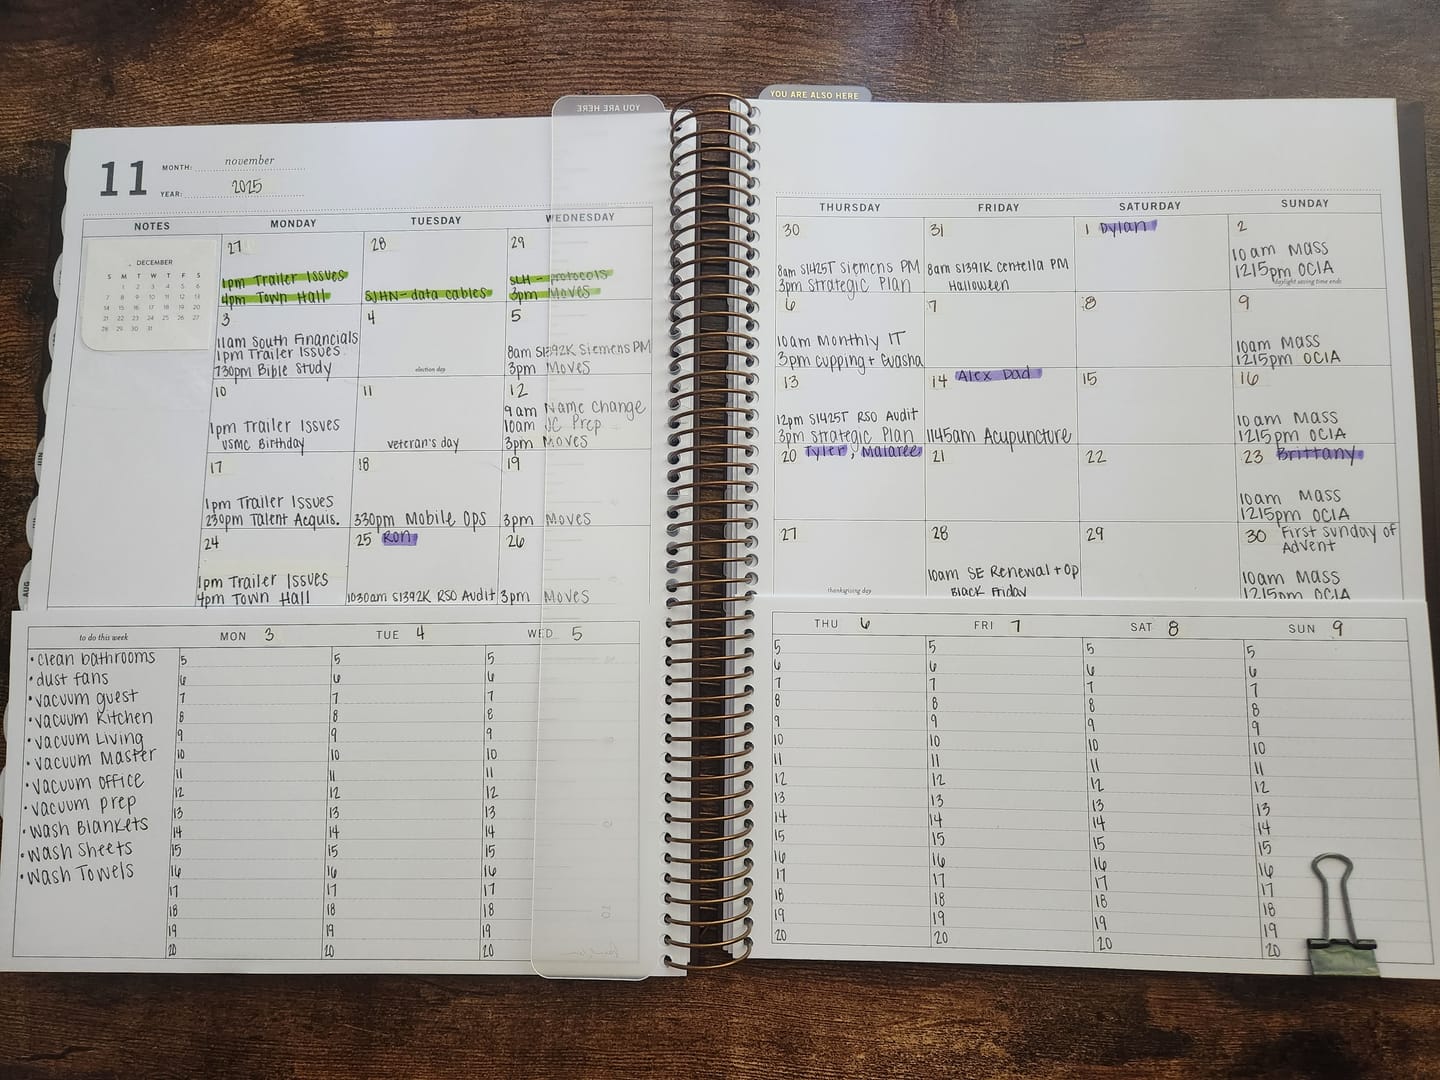 YOU ARE HERE
YOU ARE ALSO HERE
11
MONTH: november
YEAR: 2025
NOTES MONDAY TUESDAY WEDNESDAY THURSDAY FRIDAY SATURDAY SUNDAY
DECEMBER
S M T W T F S
1 2 3 4 5 6
7 8 9 10 11 12 13
14 15 16 17 18 19 20
21 22 23 24 25 26 27
28 29 30 31
27
1pm Trailer Issues
4pm Town Hall
28
SJHN-data cables
29
SLH - protocols
3pm Moves
30
8am S1425T Siemens PM
3pm Strategic Plan
31
8am S1391K Centella PM
Halloween
1 Dylan
2
10am Mass
1215pm OCIA
daylight saving time ends
3
11am South Financials
1pm Trailer Issues
730pm Bible Study
4
election day
5
8am S1392K Siemens PM
3pm Moves
6
10am Monthly IT
3pm cupping + Guasha
7
8
9
10am Mass
1215pm OCIA
10
1pm Trailer Issues
USMC Birthday
11
veteran's day
12
9am Name change
10am JC Prep
3pm Moves
13
12pm S1425T RSO Audit
3pm Strategic Plan
14 Alex Dad
1145am Acupuncture
15
16
10am Mass
1215pm OCIA
17
1pm Trailer Issues
230pm Talent Acquis.
18
330pm Mobile Ops
19
3pm Moves
20 Tyler, Malaree
21
22
23 Brittany
10am Mass
1215pm OCIA
24
1pm Trailer Issues
4pm Town Hall
25 Ron
1030am S1392K RSO Audit
26
3pm Moves
27
thanksgiving day
28
10am SE Renewal + Op
Black Friday
29
30 First Sunday of
Advent
10am Mass
1215pm OCIA
JUN
AUG
to do this week
• clean bathrooms
• dust fans
• vacuum guest
• vacuum Kitchen
• vacuum Living
• vacuum Master
• vacuum office
• vacuum prep
• Wash Blankets
• Wash Sheets
• Wash Towels
MON 3
5
6
7
8
9
10
11
12
13
14
15
16
17
18
19
20
TUE 4
5
6
7
8
9
10
11
12
13
14
15
16
17
18
19
20
WED 5
5
6
7
8
9
10
11
12
13
14
15
16
17
18
19
20
THU 6
5
6
7
8
9
10
11
12
13
14
15
16
17
18
19
20
FRI 7
5
6
7
8
9
10
11
12
13
14
15
16
17
18
19
20
SAT 8
5
6
7
8
9
10
11
12
13
14
15
16
17
18
19
20
SUN 9
5
6
7
8
9
10
11
12
13
14
15
16
17
18
19
20